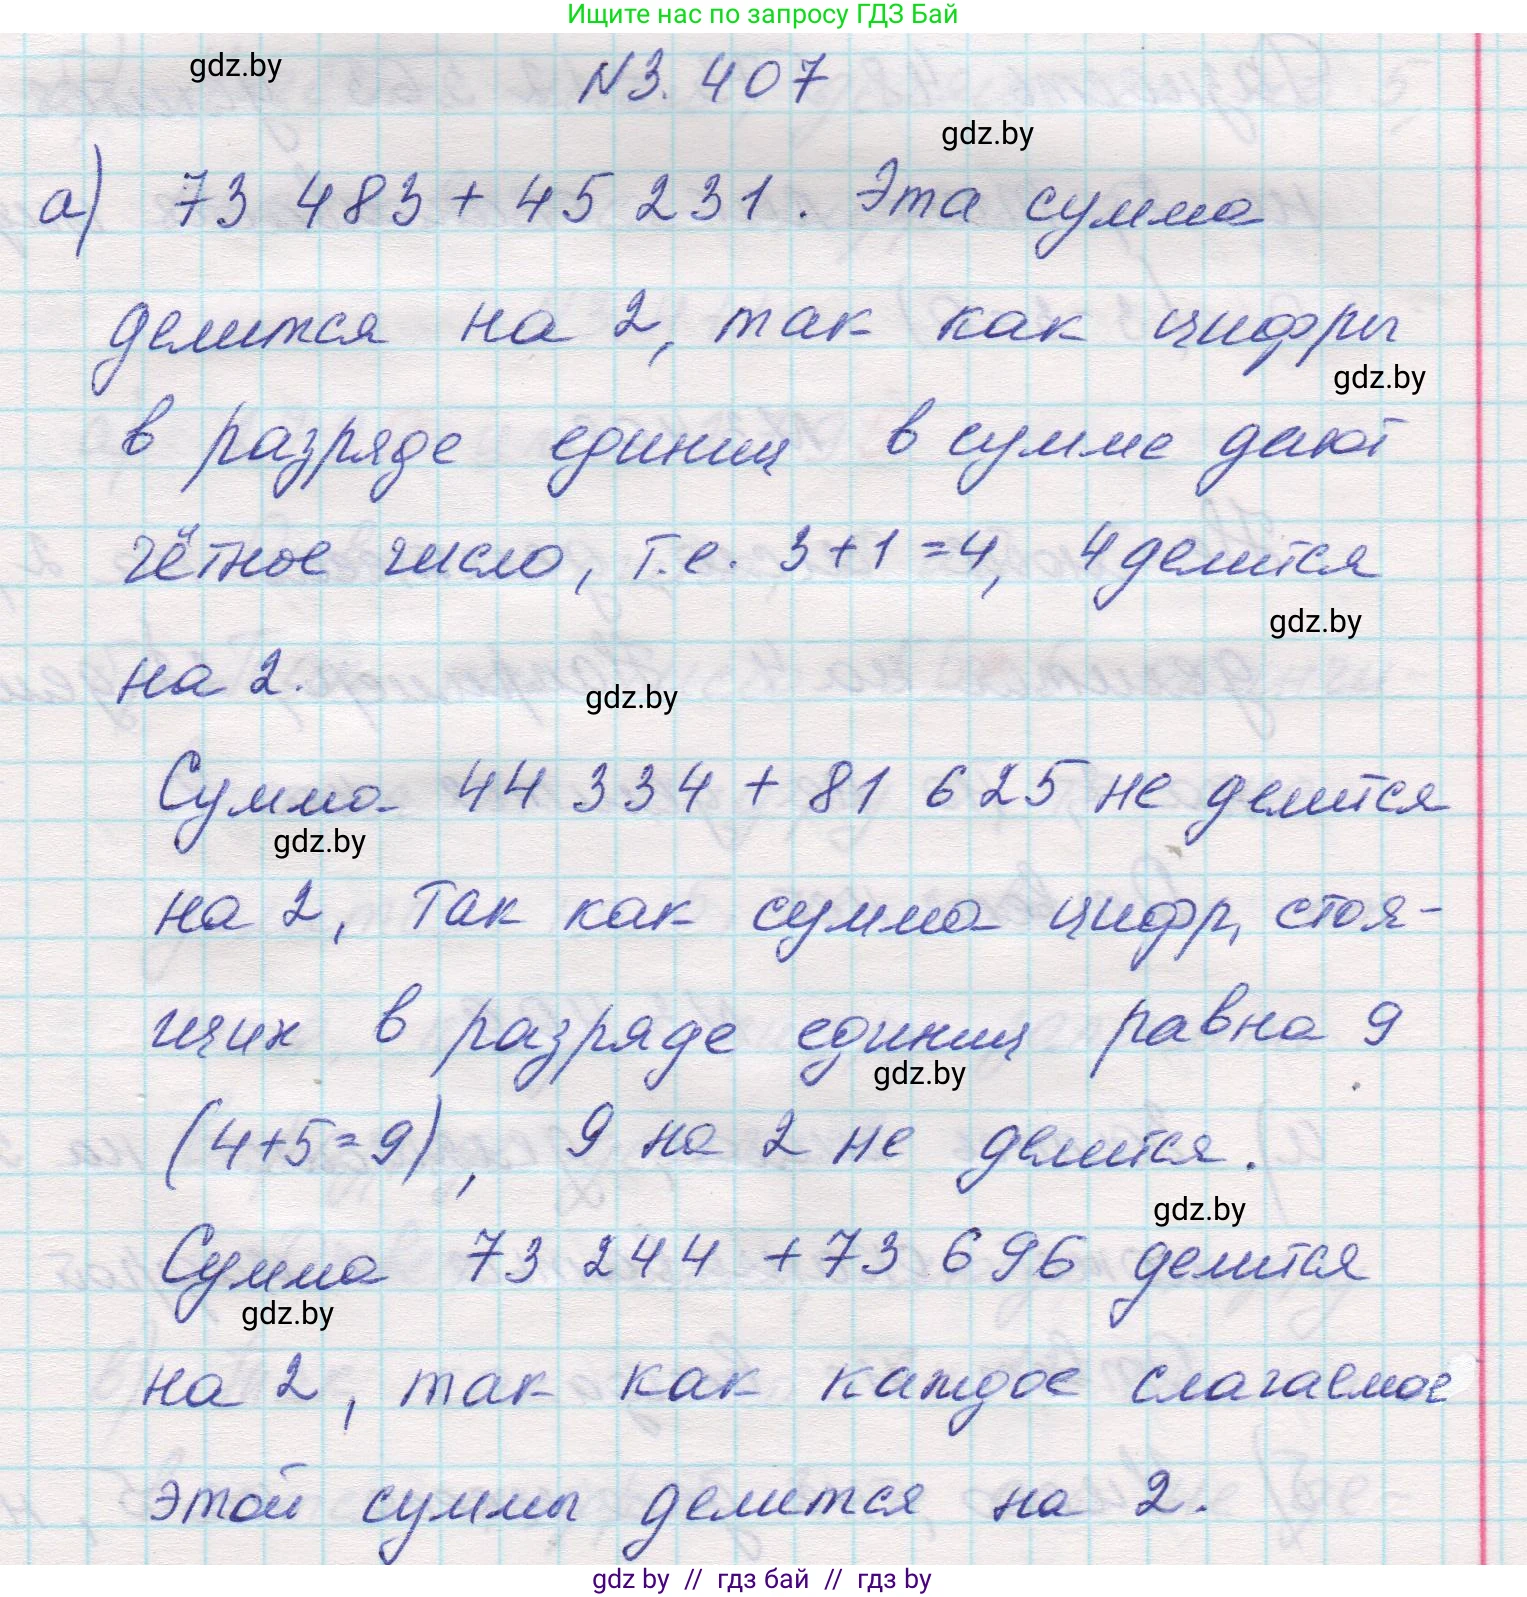 Ищите нас по запросу ГДЗ Бай
gdz.by
N3.407
gdz.by
а) 73 483 + 45 231. Эта сумма
делится на 2, так как цифры
gdz.by
в разряде единиц в сумме дают
чётное число, т.е. 3+1=4, 4 делится
gdz.by
на 2.
gdz.by
Сумма 44 334 + 81 625 не делится
gdz.by
на 2, так как сумма цифр, стоя-
щих в разряде единиц равна 9
gdz.by
(4+5=9), 9 на 2 не делится.
gdz.by
Сумма 73 244 + 73 696 делится
gdz.by
на 2, так как каждое слагаемое
этой суммы делится на 2.
gdz by // гдз бай // гдз by